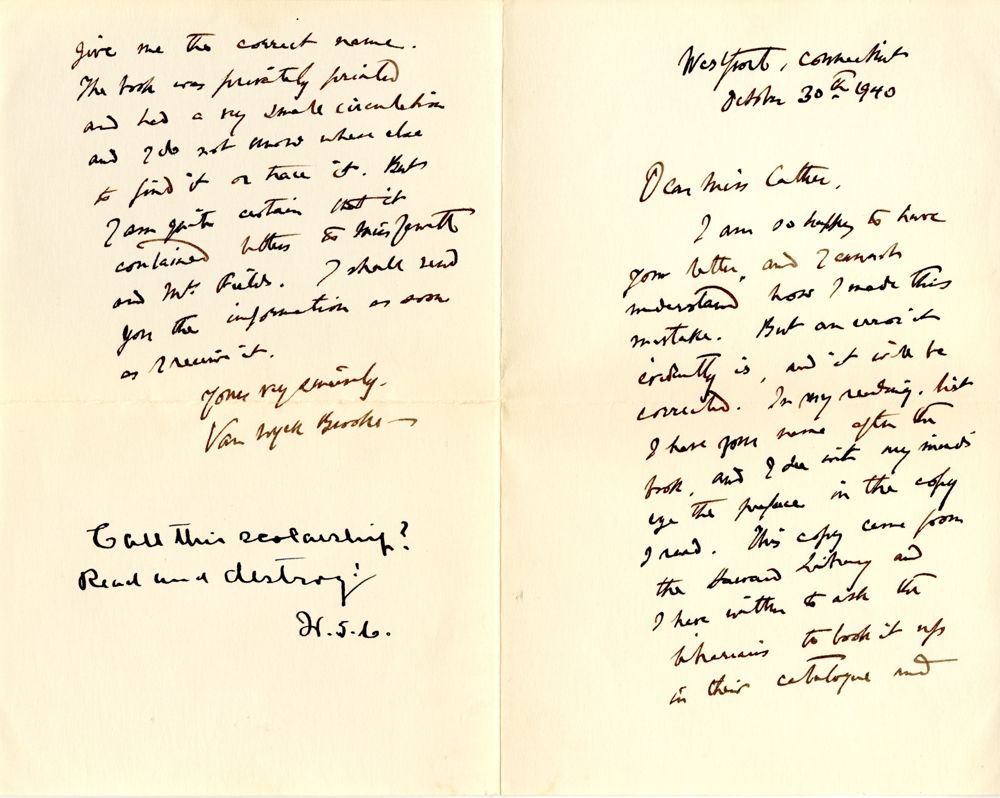 Westport, Connecticut
October 30th 1940
Dear Miss Cather,
I am so happy to have
your letter, and I cannot
understand how I made this
mistake. But an error it
evidently is, and it will be
corrected. In my reading-list
I have your name after the
book, and I see with my mind's
eye the preface in the copy
I read. This copy came from
the Harvard Library and
I have written to ask the
librarians to look it up
in their catalogue and
give me the correct name.
The book was privately printed
and had a very small circulation
and I do not know where else
to find it or trace it. But
I am quite certain that it
contained letters to Miss Jewett
and Mrs. Fields. I shall send
you the information as soon
as I receive it.
Yours very sincerely.
Van Wyck Brooks —
Call this scolarship?
Read and destroy!
W.S.C.